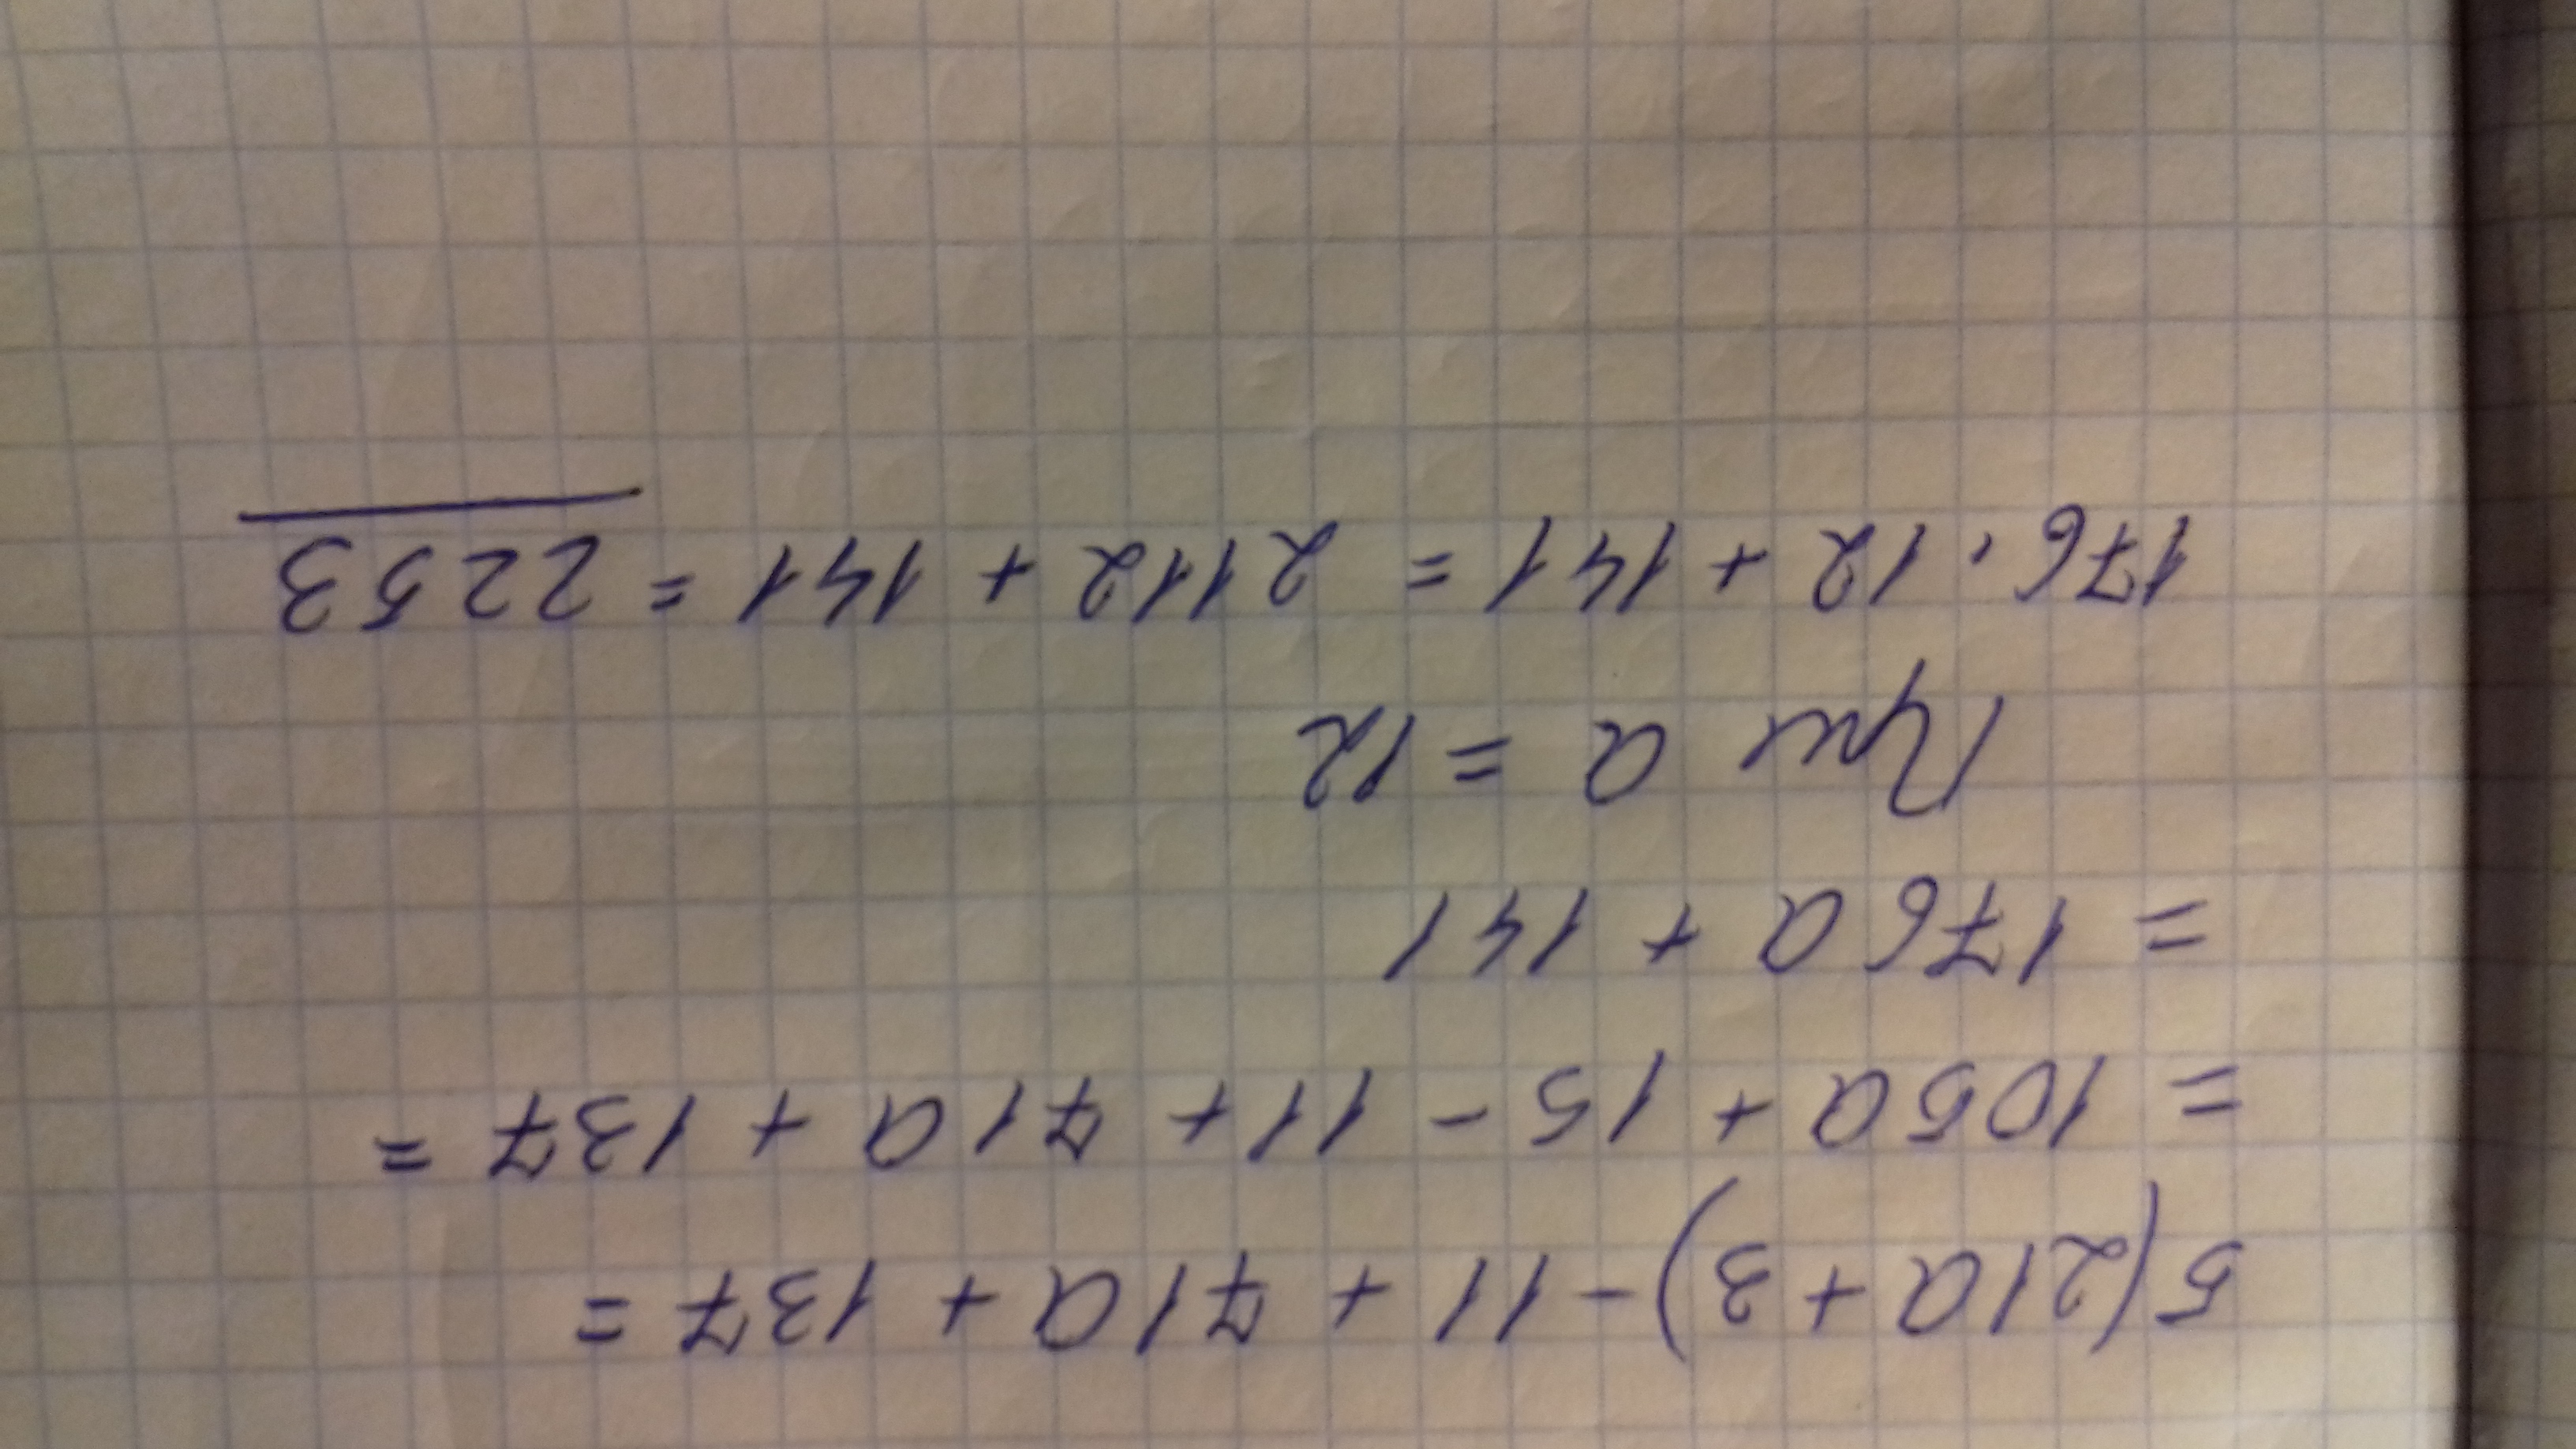 5(21a + 3) - 11 + 71a + 137 =
= 105a + 15 - 11 + 71a + 137 =
= 176a + 141
При a = 12
176 · 12 + 141 = 2112 + 141 = 2253